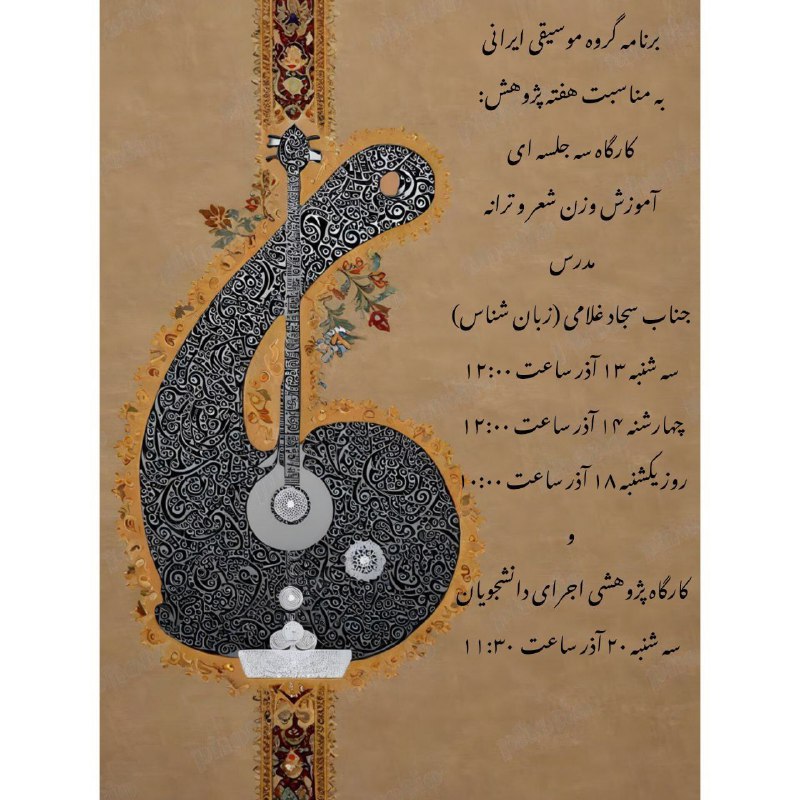 برنامه گروه موسیقی ایرانی
به مناسبت هفته پژوهش:
کارگاه سه جلسه ای
آموزش وزن شعر و ترانه
مدرس
جناب سجاد غلامی (زبان شناس)
سه شنبه ۱۳ آذر ساعت ۱۲:۰۰
چهارشنه ۱۴ آذر ساعت ۱۲:۰۰
روز یکشنبه ۱۸ آذر ساعت ۱۰:۰۰
و
کارگاه پژوهشی اجرای دانشجویان
سه شنبه ۲۰ آذر ساعت ۱۱:۳۰